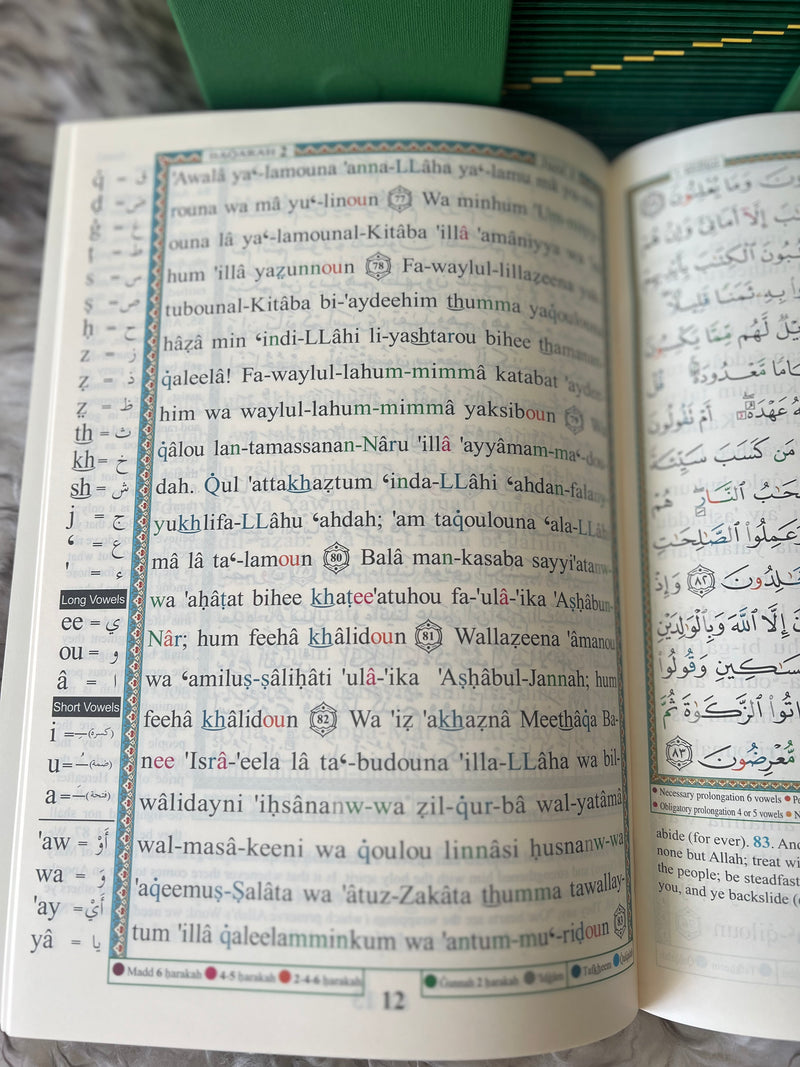 BAQARAH 2
'Awalâ ya‘-lamouna 'anna-LLâha ya‘-lamu mâ yu-
rouna wa mâ yu‘-linoun 77 Wa minhum 'Um-
ouna lâ ya‘-lamounal-Kitâba 'illâ 'amâniyya wa
hum 'illâ yaẓunnoun 78 Fa-waylul-lillaẓeena
tubounal-Kitâba bi-'aydeehim thumma yaq̇oulouna
hâẓâ min ‘indi-LLâhi li-yashtarou bihee thamanan
q̇aleelâ! Fa-waylul-lahum-mimmâ katabat 'aydee
him wa waylul-lahum-mimmâ yaksiboun 79 Wa
q̇âlou lan-tamassanan-Nâru 'illâ 'ayyâmam-ma‘-dou
dah. Q̇ul 'attakhaẓtum ‘inda-LLâhi ‘ahdan-falany
yukhlifa-LLâhu ‘ahdah; 'am taq̇oulouna ‘ala-LLâhi
mâ lâ ta‘-lamoun 80 Balâ man-kasaba sayyi'atanw-
wa 'aḥâṭat bihee khaṭee'atuhou fa-'ulâ-'ika 'Aṣḥâbun-
Nâr; hum feehâ khâlidoun 81 Wallaẓeena 'âmanou
wa ‘amiluṣ-ṣâliḥâti 'ulâ-'ika 'Aṣḥâbul-Jannah; hum
feehâ khâlidoun 82 Wa 'iẓ 'akhaẓnâ Meethâq̇a Ba-
nee 'Isrâ-'eela lâ ta‘-budouna 'illa-LLâha wa bil-
wâlidayni 'iḥsânanw-wa ẓil-q̇ur-bâ wal-yatâmâ
wal-masâ-keeni wa q̇oulou linnâsi ḥusnanw-wa
'aq̇eemuṣ-Ṣalâta wa 'âtuz-Zakâta thumma tawallay-
tum 'illâ q̇aleelamminkum wa 'antum-mu‘-riḍoun 83
Madd 6 ḥarakah 4-5 ḥarakah 2-4-6 ḥarakah Gunnah 2 ḥarakah Tafkheem
12
q̇ = ق
ḍ = ض
ġ = غ
ṭ = ط
s = س
ṣ = ص
ḥ = ح
z = ز
ẓ = ذ
ẓ = ظ
th = ث
kh = خ
sh = ش
j = ج
‘ = ع
' = ء
Long Vowels
ee = ي
ou = و
â = ا
Short Vowels
i = (كسرة)
u = (ضمة)
a = (فتحة)
'aw = أَوْ
wa = وَ
'ay = أَيْ
yâ = يا
وَمَا يُعْلِنُونَ
إِلَّآ أَمَانِىَّ وَإِنْ هُمْ
ٱلْكِتَٰبَ بِأَيْدِيهِمْ
بِهِۦ ثَمَنًا قَلِيلًا
لَّهُم مِّمَّا يَكْسِبُونَ
مَّعْدُودَةً قُلْ
عَهْدَهُۥٓ أَمْ تَقُولُونَ
مَن كَسَبَ سَيِّئَةً
ٱلنَّارِ هُمْ
وَعَمِلُوا۟ ٱلصَّٰلِحَٰتِ
٨٢ وَإِذْ
إِلَّا ٱللَّهَ وَبِٱلْوَٰلِدَيْنِ
وَقُولُوا۟
ٱلزَّكَوٰةَ ثُمَّ
مُّعْرِضُونَ ٨٣
Necessary prolongation 6 vowels
Obligatory prolongation 4 or 5 vowels
abide (for ever). 83. And
none but Allah; treat wi
the people; be steadfast
you, and ye backslide